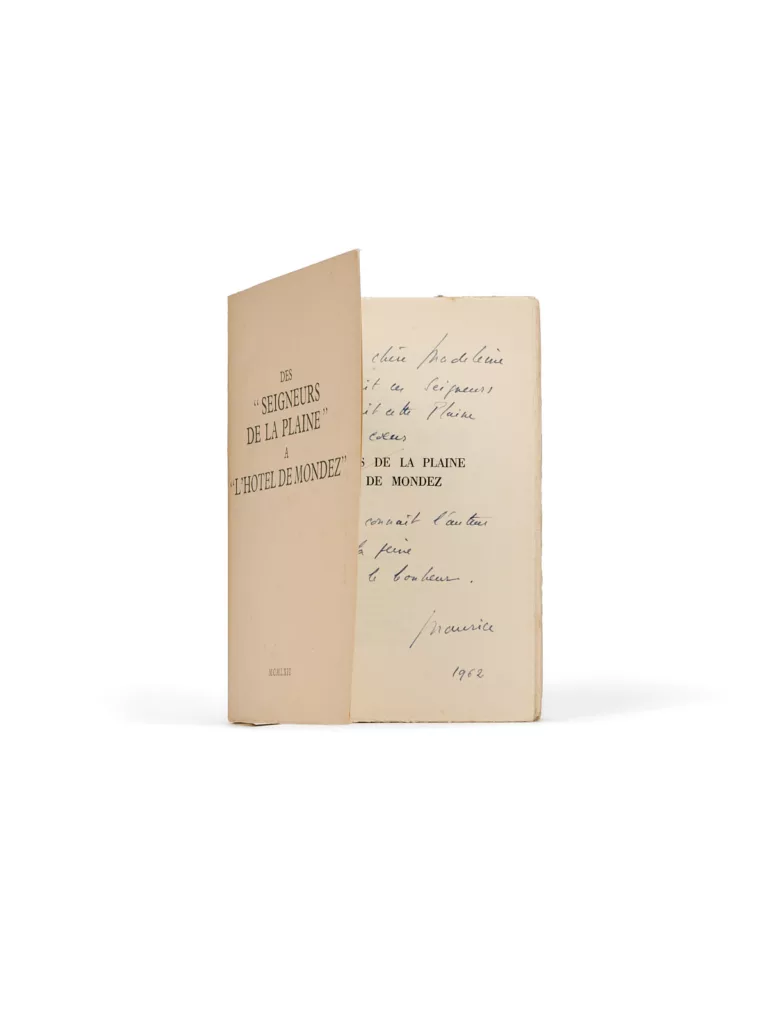 DES
"SEIGNEURS
DE LA PLAINE"
A
"L'HOTEL DE MONDEZ"
MCMLXII
chère Madeleine
it ces Seigneurs
it cette Plaine
cœur
S DE LA PLAINE
DE MONDEZ
connait l'auteur
la peine
le bonheur.
Maurice
1962